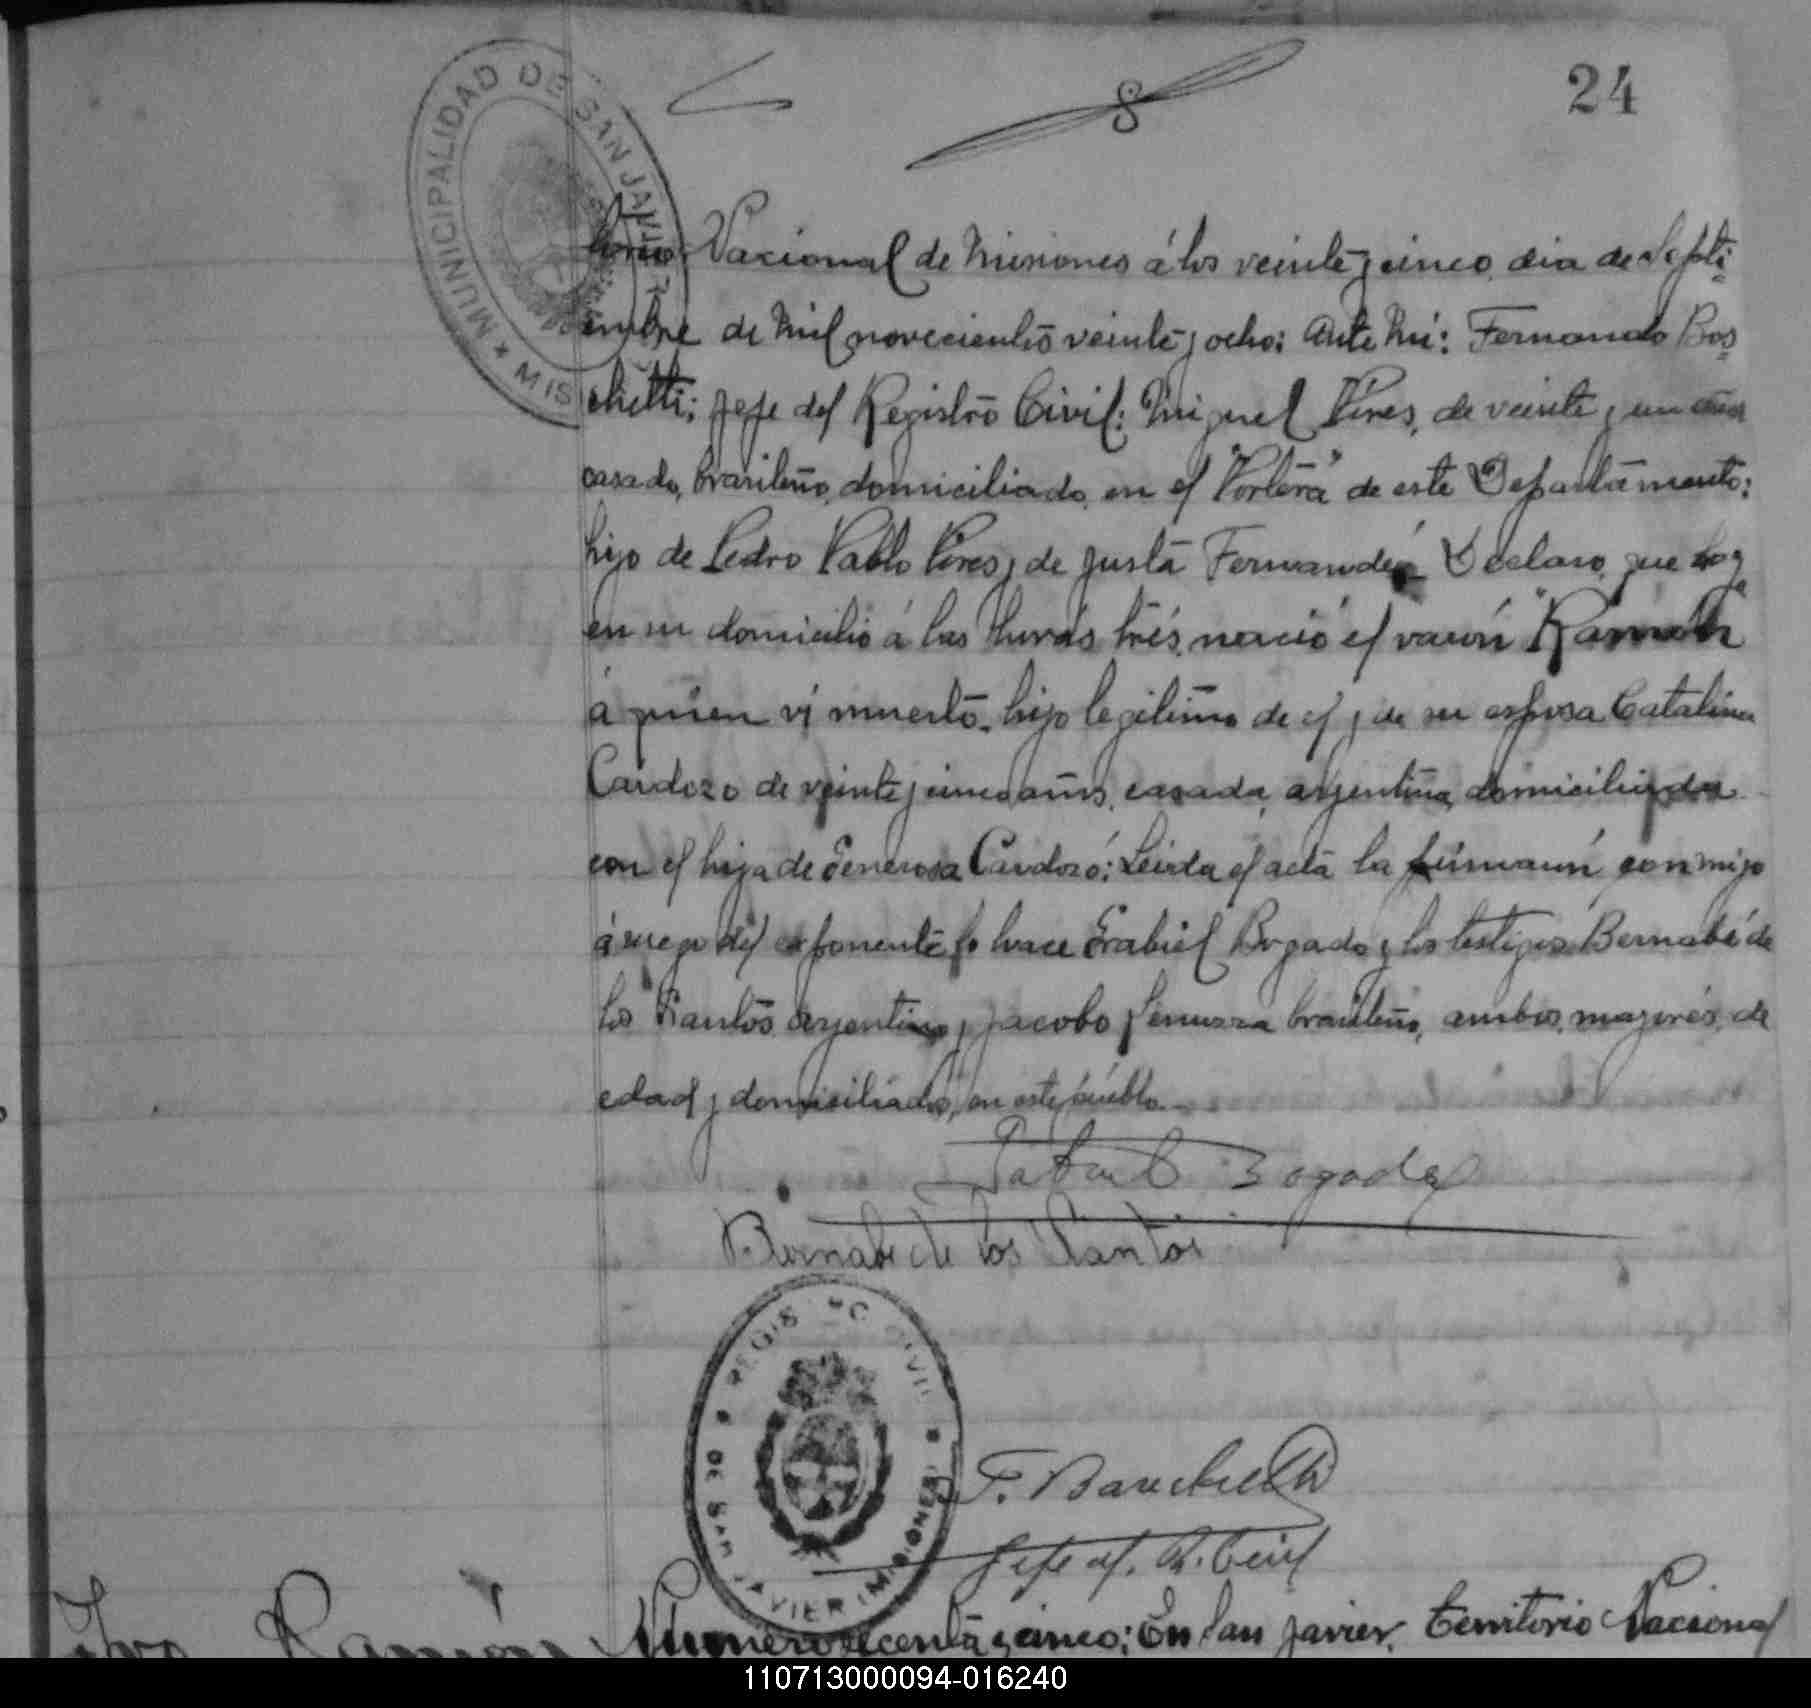 24
8
MUNICIPALIDAD DE SAN JAVIER
MIS
torio Nacional de Misiones á los veinte y cinco dia de Septi-
embre de Mil novecientos veinte y ocho: Ante Mí: Fernando Bos-
chetti; Jefe del Registro Civil: Miguel Píres, de veinte y un años
casado, brasileño, domiciliado en el "Portera" de este Departamento:
hijo de Pedro Pablo Píres y de Justa Fernandez Declaro que hoy
en su domicilio á las horas trés, nació el varón "Ramón"
á quien ví muerto, hijo legitimo de el y de su esposa Catalina
Cardozo de veinte y cinco años, casada, argentina, domiciliada
con el hija de Generosa Cardozo: Leida el acta la firmarón conmigo
á ruego del exponente lo hace Grabiel Bogado y los testigos Bernabé de
los Santos argentino y Jacobo brasileño, ambos mayores de
edad y domiciliados en este pueblo.
Gabriel Bogado
Bernabe de los Santos
REGIS CIVIL
DE SAN JAVIER (MISIONES)
F. Boschetti
Jefe del R. Civil
Ramón
Numero secenta y cinco: En San Javier, Territorio Nacional
110713000094-016240